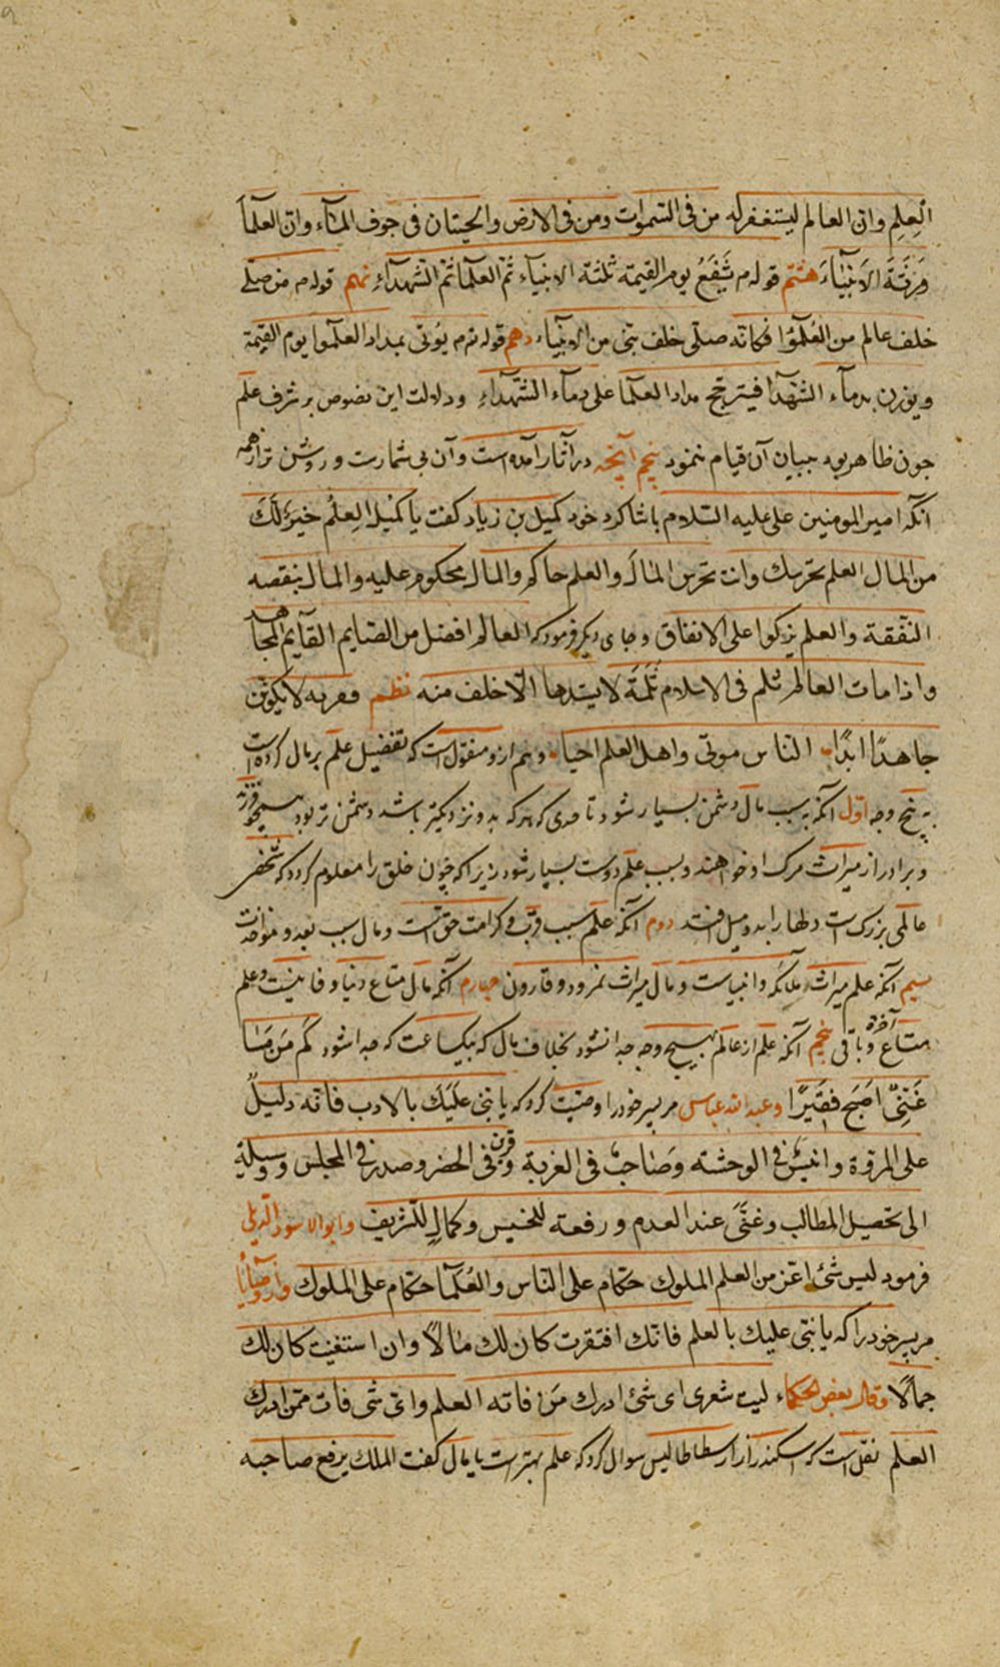 العلم وان العالم ليستغفر له من فى السموات ومن فى الارض والحيتان فى جوف المآء وان العلمآ
ورثة الانبيآء هشتم قوله م يشفع يوم القيمة ثلثة الانبيآء ثم العلمآ ثم الشهدآء نهم قوله م من صلى
خلف عالم من العلمآؤا فكانه صلى خلف نبى من الانبيآء دهم قوله م يؤتى بمداد العلمآؤا يوم القيمة
ويوزن بدمآء الشهدآ فيترجح مداد العلمآ على دمآء الشهدآء ودلالت اين نصوص بر شرف علم
جون ظاهر بود ببيان آن قيام ننمود پنجم آنچه در آثار آمده است وآن بى شمارست وروشن تر از همه
آنكه امير المومنين على عليه السلام باشاكرد خود كميل بن زياد كفت يا كميل العلم خير لك
من المال العلم يحرسك وانت تحرس المال والعلم حاكم والمال محكوم عليه والمال ينقصه
النفقة والعلم يزكوا على الانفاق وجاى ديكر فرمود كه العالم افضل من الصايم القايم المجاهد
واذا مات العالم ثلم فى الاسلام ثلمة لا يسدها الا خلف منه نظم ففز به لا يكونن
جاهدًا ابدًا الناس موتى واهل العلم احياء وهم ازو منقول است كه تفضيل علم بر مال كرده است
به پنج وجه اول آنكه بسبب مال دشمن بسيار شود تا حدى كه هر كه بدو نزديكتر باشد دشمن تر بود همچو فرزند
وبرادر از ميراث مرك او خواهند وبسبب علم دوست بسيار شود زيرا كه چون خلق را معلوم كردد كه شخصى
عالمى بزرك است دلها را بدو ميل افتد دوم آنكه علم سبب قرب وكرامت حق است ومال سبب بعد و
سيم آنكه علم ميراث ملائكه وانبياست ومال ميراث نمرود وقارون چهارم آنكه مال متاع دنيا وفانيست وعلم
متاع آخرة وباقى پنجم آنكه علم از عالم بهيچ وجه جدا نشود بخلاف مال كه بيكساعت كه جدا شود كم من مسا
غنى اصبح فقيرًا وعبد الله عباس مر پسر خود را وصيت كرد كه يا بنى عليك بالادب فانه دليل
على المروة وانيس فى الوحشه وصاحب فى الغربة وقرين فى الحضر وصدر فى المجلس ووسيلة
الى تحصيل المطالب وغنًى عند العدم ورفعة للخسيس وكمال للشريف وابو الاسود الديلى
فرمود ليس شئ اعز من العلم الملوك حكام على الناس والعلمآ حكام على الملوك
مر پسر خود را كه يا بنى عليك بالعلم فانك افتقرت كان لك مالًا وان استغنيت كان لك
جمالًا وقال بعض الحكمآء ليت شعرى اى شئ ادرك من فاته العلم واى شى فات ممن ادرك
العلم نقل است كه اسكندر از ارسطاطاليس سوال كرد كه علم بهترست يا مال كفت الملك يرفع صاحبه